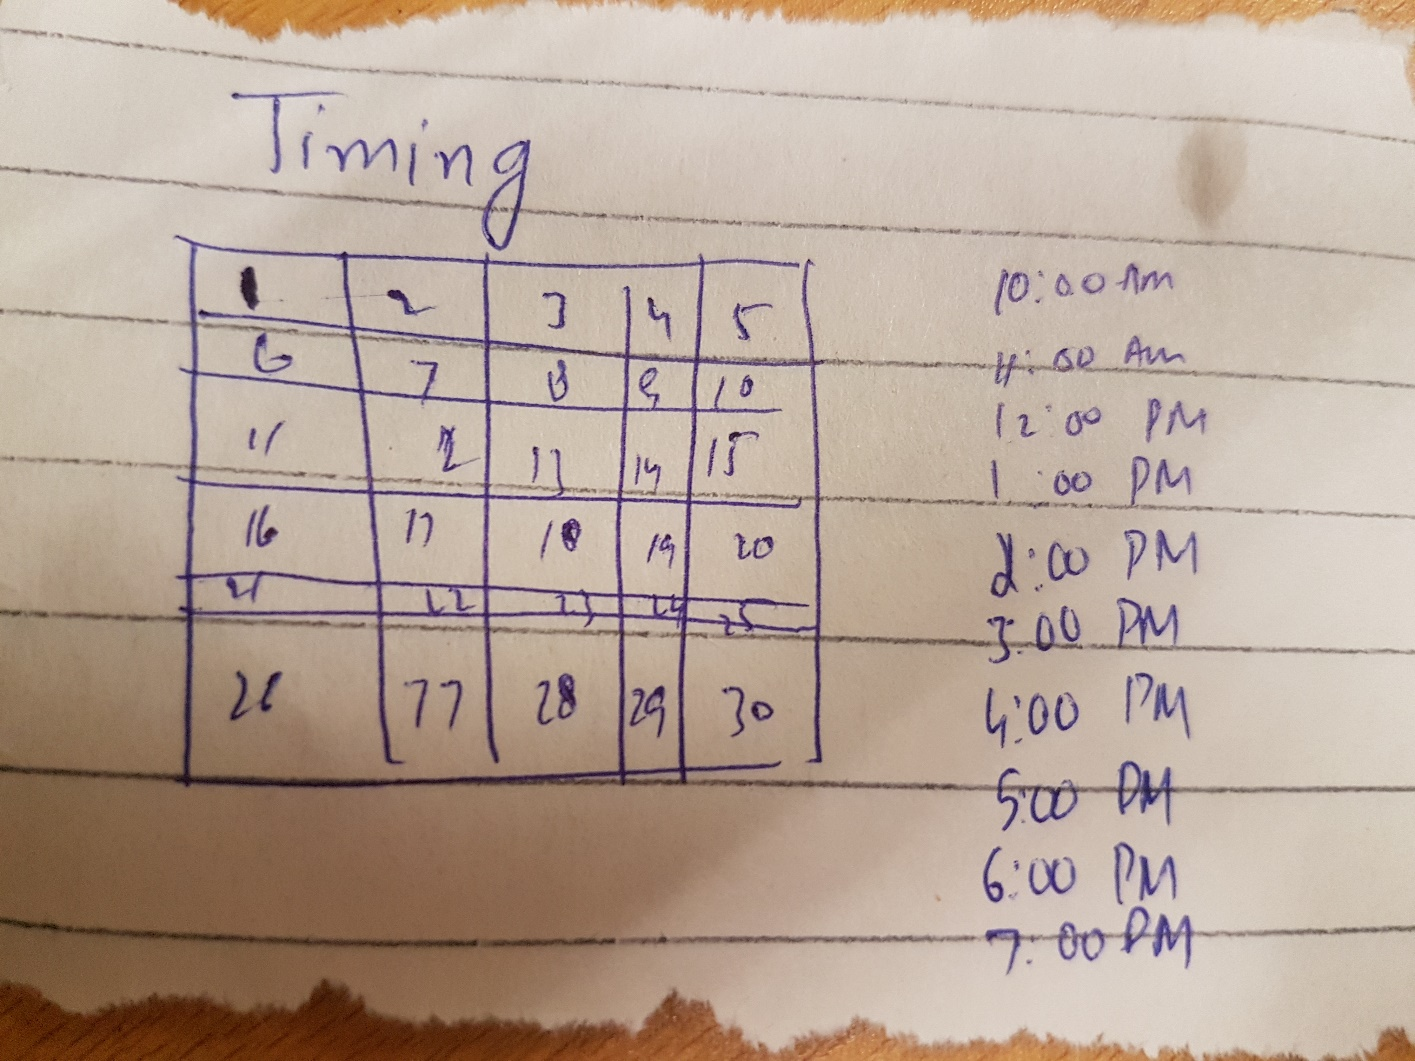 Timing
1 2 3 4 5
6 7 8 9 10
11 12 13 14 15
16 17 18 19 20
21 22 23 24 25
26 77 28 29 30
10:00 Am
11:00 Am
12:00 PM
1:00 PM
2:00 PM
3:00 PM
4:00 PM
5:00 PM
6:00 PM
7:00 PM